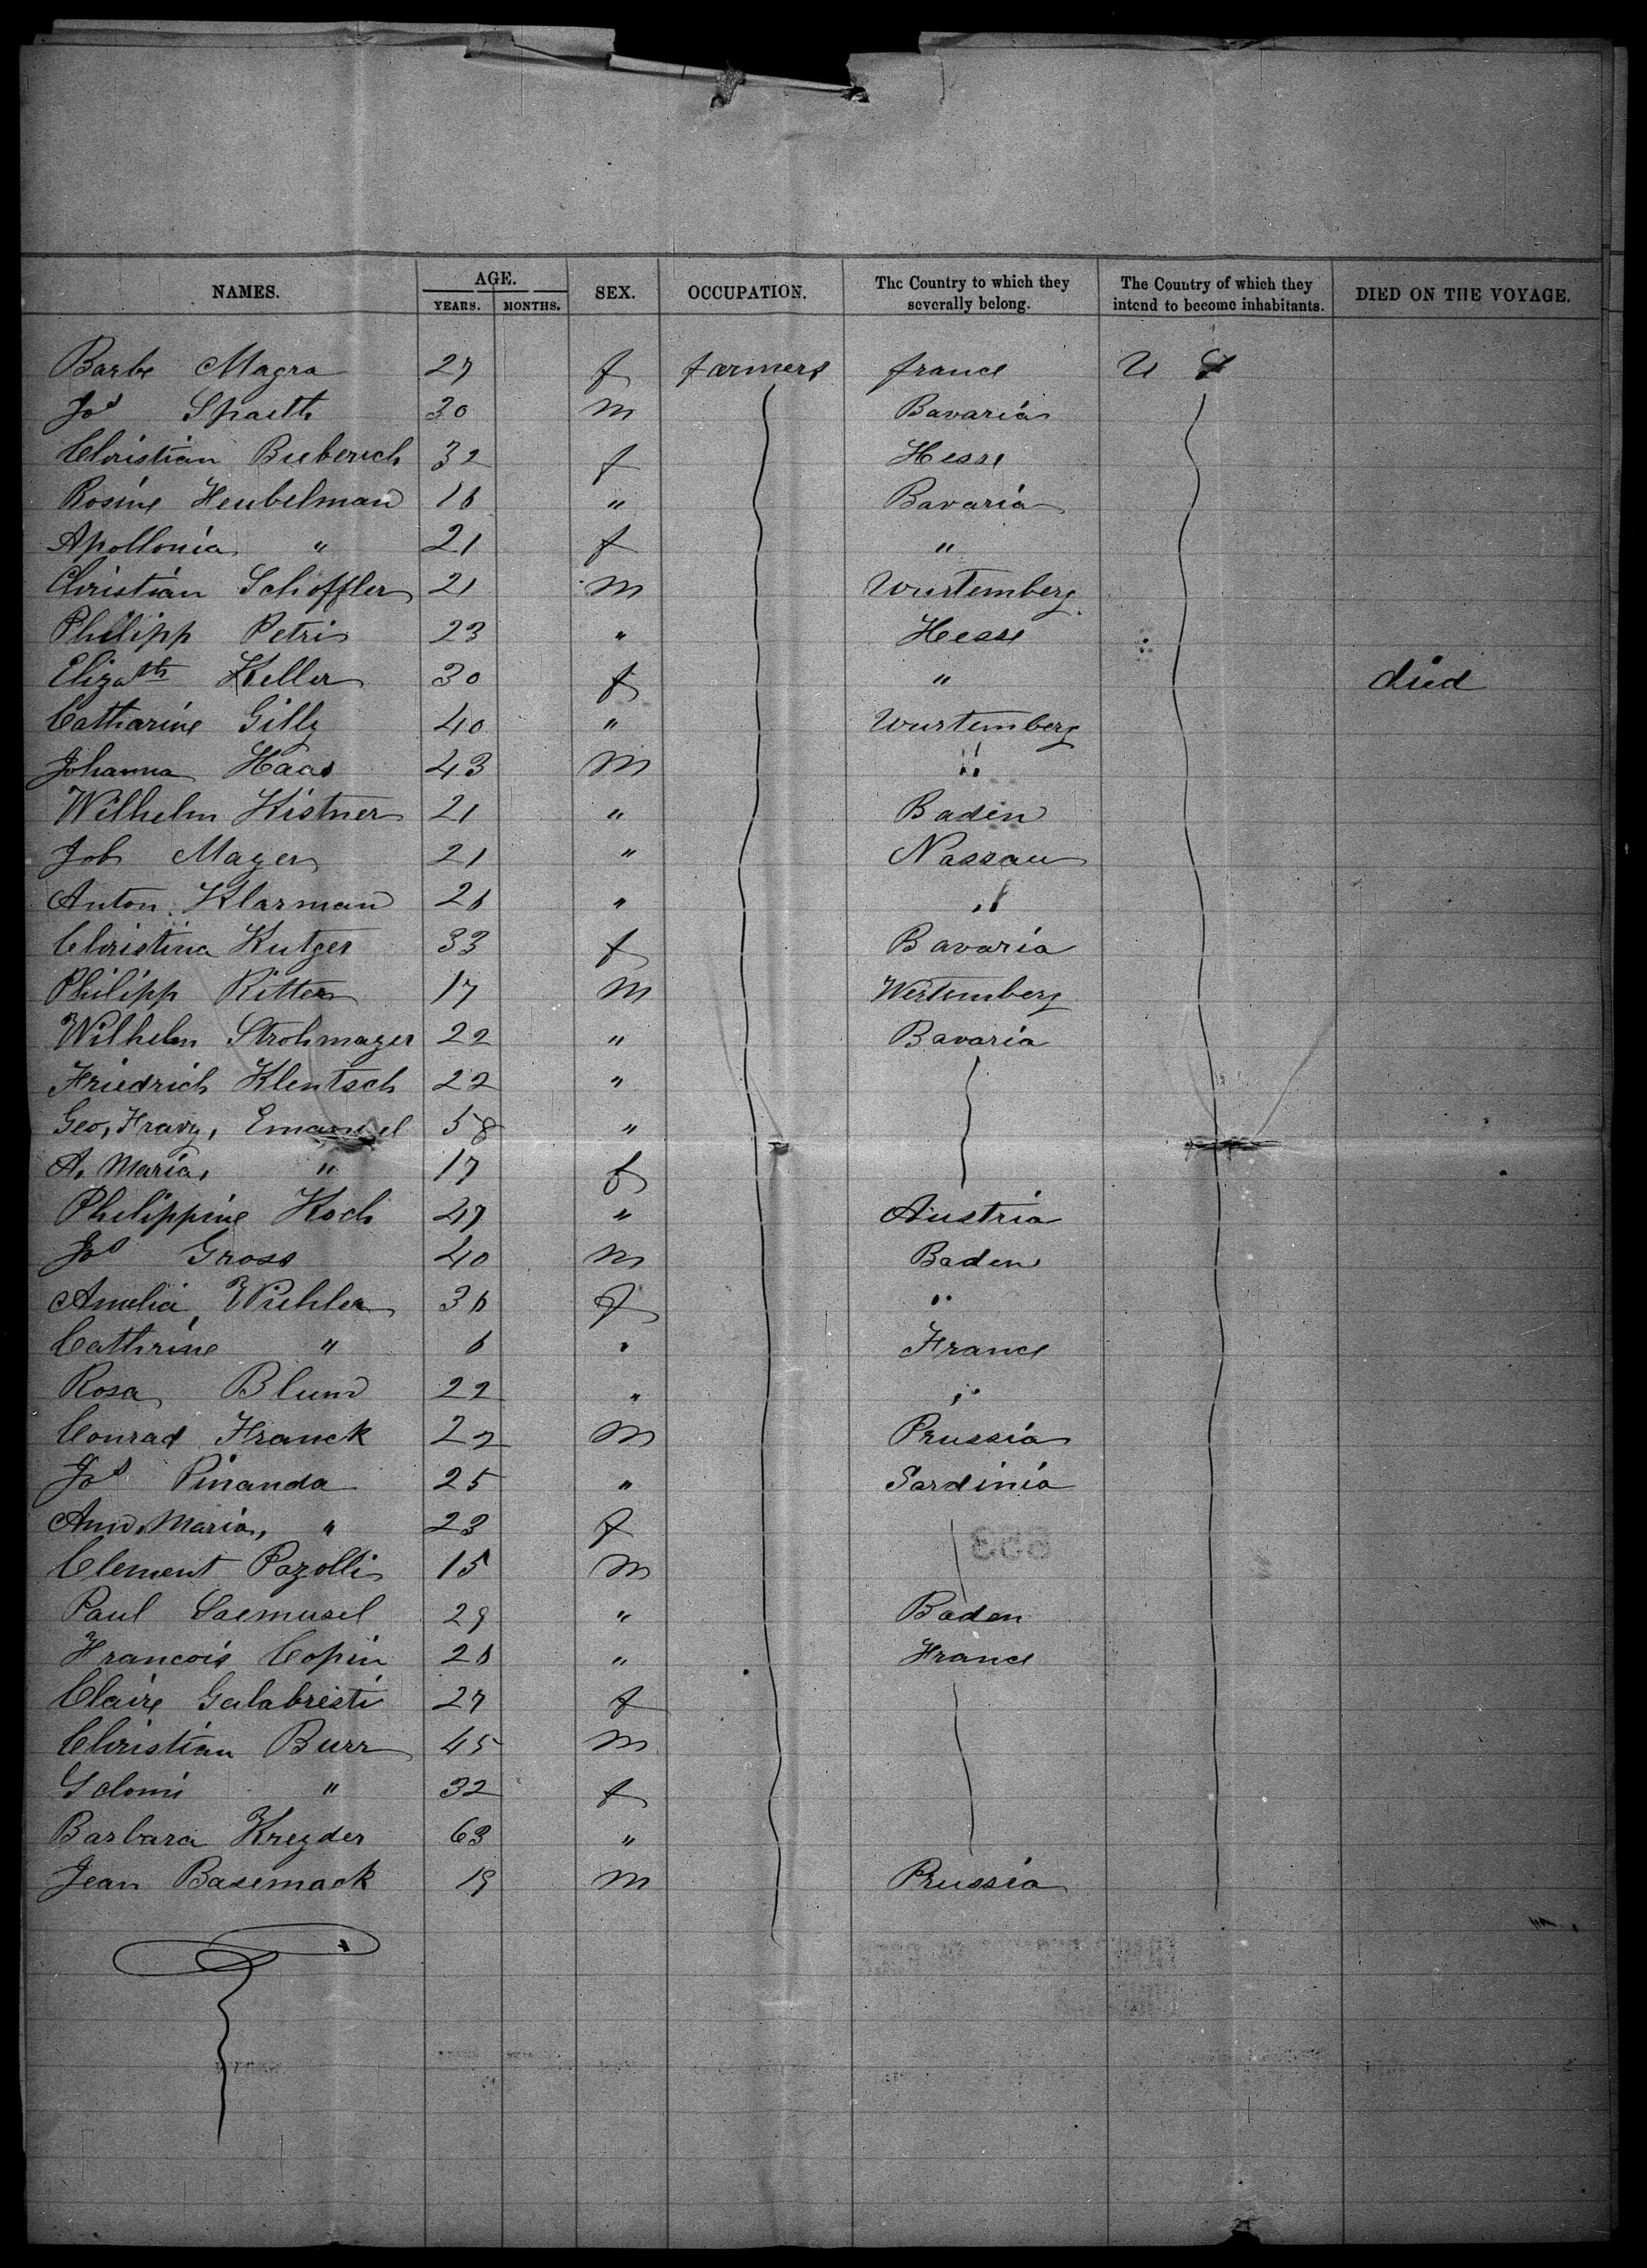 NAMES. AGE. YEARS. MONTHS. SEX. OCCUPATION. The Country to which they severally belong. The Country of which they intend to become inhabitants. DIED ON THE VOYAGE.
Barbe Magra 27 f farmers france U S
Jos Spaeth 30 m Bavaria
Christian Bieberich 32 f Hesse
Rosine Heubelman 16 " Bavaria
Apollonia " 21 f "
Christian Schoffler 21 m Wurtemberg
Philipp Petri 23 " Hesse
Elizath Keller 30 f " died
Catharine Gilly 40 " Wurtemberg
Johanna Haas 43 m "
Wilhelm Kistner 21 " Baden
Joh Mayer 21 " Nassau
Anton Klarman 26 " "
Christina Kutger 33 f Bavaria
Philipp Ritter 17 m Wertemberg
Wilhelm Strohmayer 22 " Bavaria
Friedrich Klentsch 22 "
Geo, Franz, Emanuel 58 "
A. Maria, " 17 f
Philippine Koch 47 " Austria
Jos Gross 40 m Baden
Amelia Wiehler 36 f "
Cathrine " 6 " France
Rosa Blum 22 " "
Conrad Franck 22 m Prussia
Jos Pinanda 25 " Sardinia
Ann Maria, " 23 f
Clement Pazolli 15 m
Paul Saemusel 29 " Baden
Francois Copin 26 " France
Claire Galabresti 27 f
Christian Burr 45 m
Salomi " 32 f
Barbara Kreyder 63 "
Jean Basemack 19 m Prussia